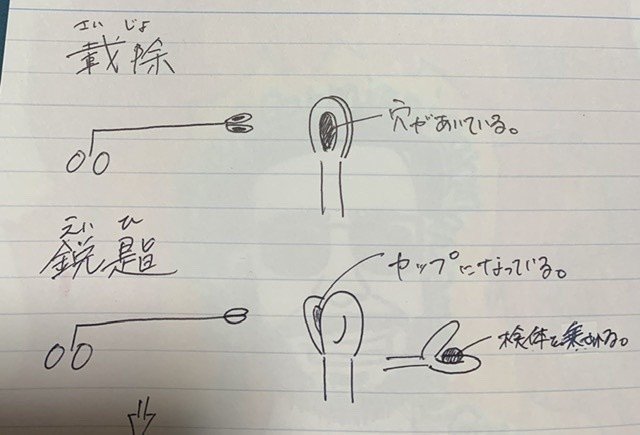 さい じょ
載除
穴があいている。
えい ひ
鋭匙
カップになっている。
検体を